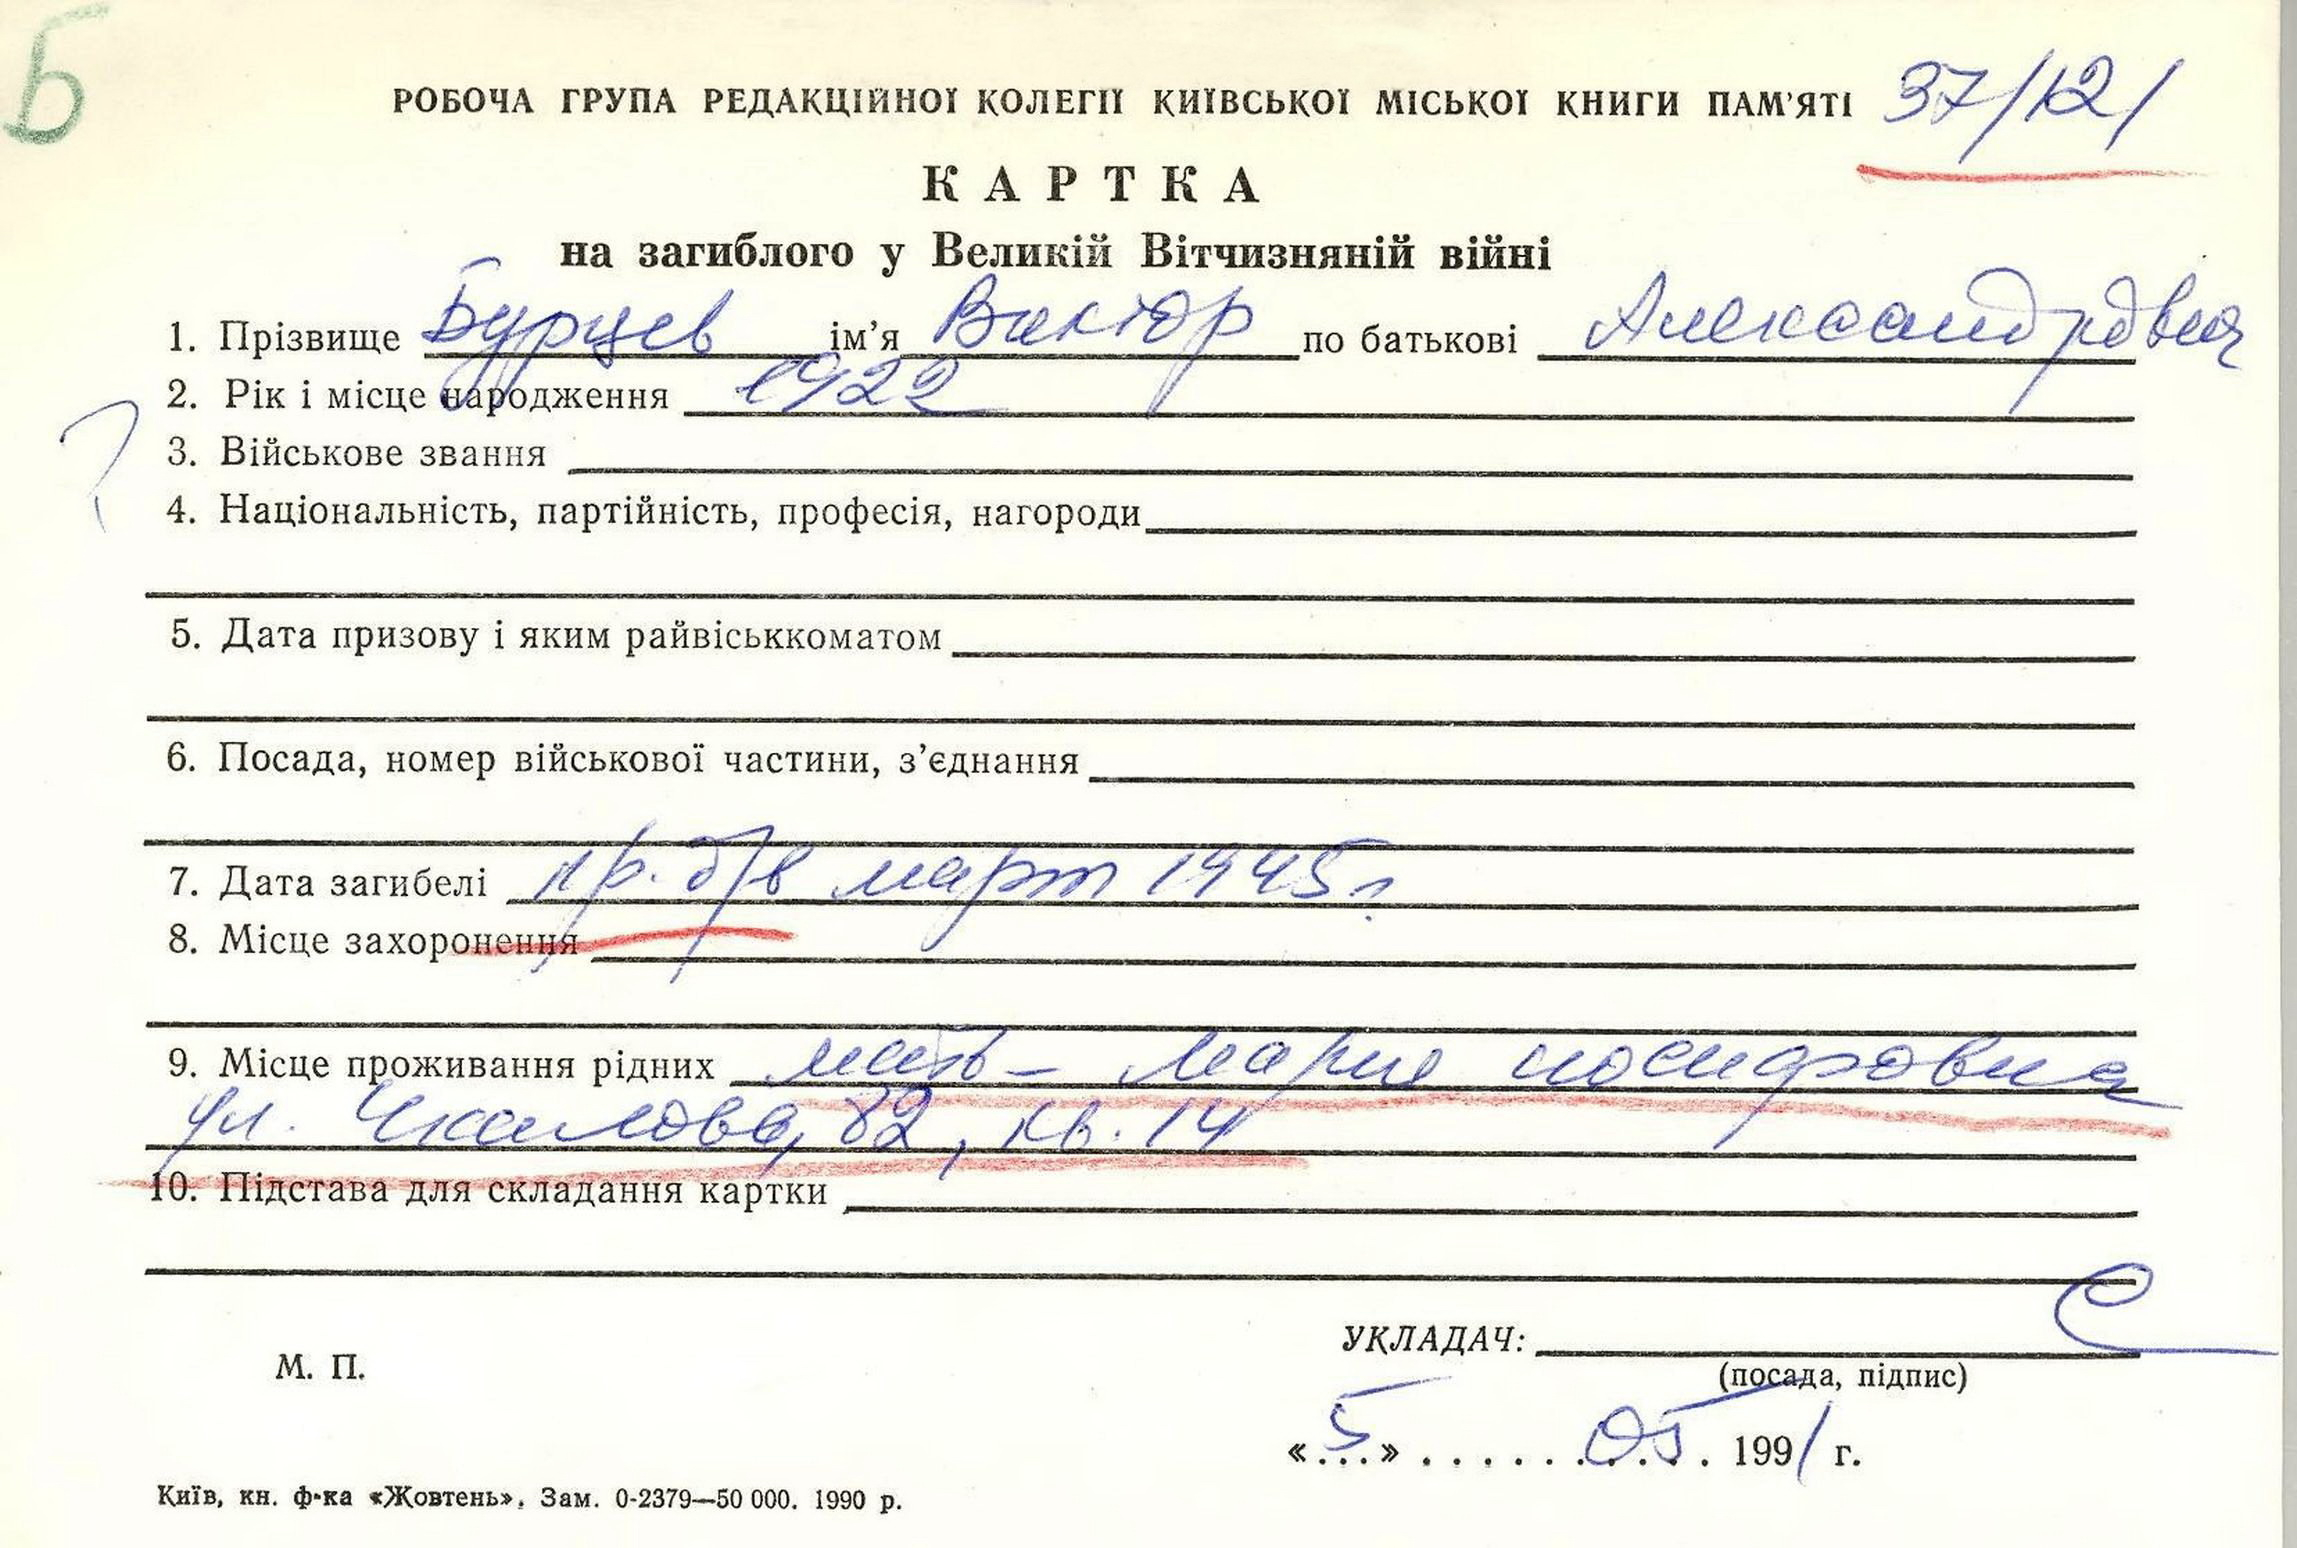 Б
РОБОЧА ГРУПА РЕДАКЦІЙНОЇ КОЛЕГІЇ КИЇВСЬКОЇ МІСЬКОЇ КНИГИ ПАМ'ЯТІ 37/121
КАРТКА
на загиблого у Великій Вітчизняній війні
1. Прізвище Бурцев ім'я Виктор по батькові Александрович
2. Рік і місце народження 1922
?
3. Військове звання
4. Національність, партійність, професія, нагороди
5. Дата призову і яким райвіськкоматом
6. Посада, номер військової частини, з'єднання
7. Дата загибелі пр. б/в март 1945 г.
8. Місце захоронення
9. Місце проживання рідних мать – Мария иосифовна
ул. Чкалова, 82, кв. 14
10. Підстава для складання картки
УКЛАДАЧ:
М. П.
(посада, підпис)
«5» 05 1991 г.
Київ, кн. ф-ка «Жовтень». Зам. 0-2379—50 000. 1990 р.